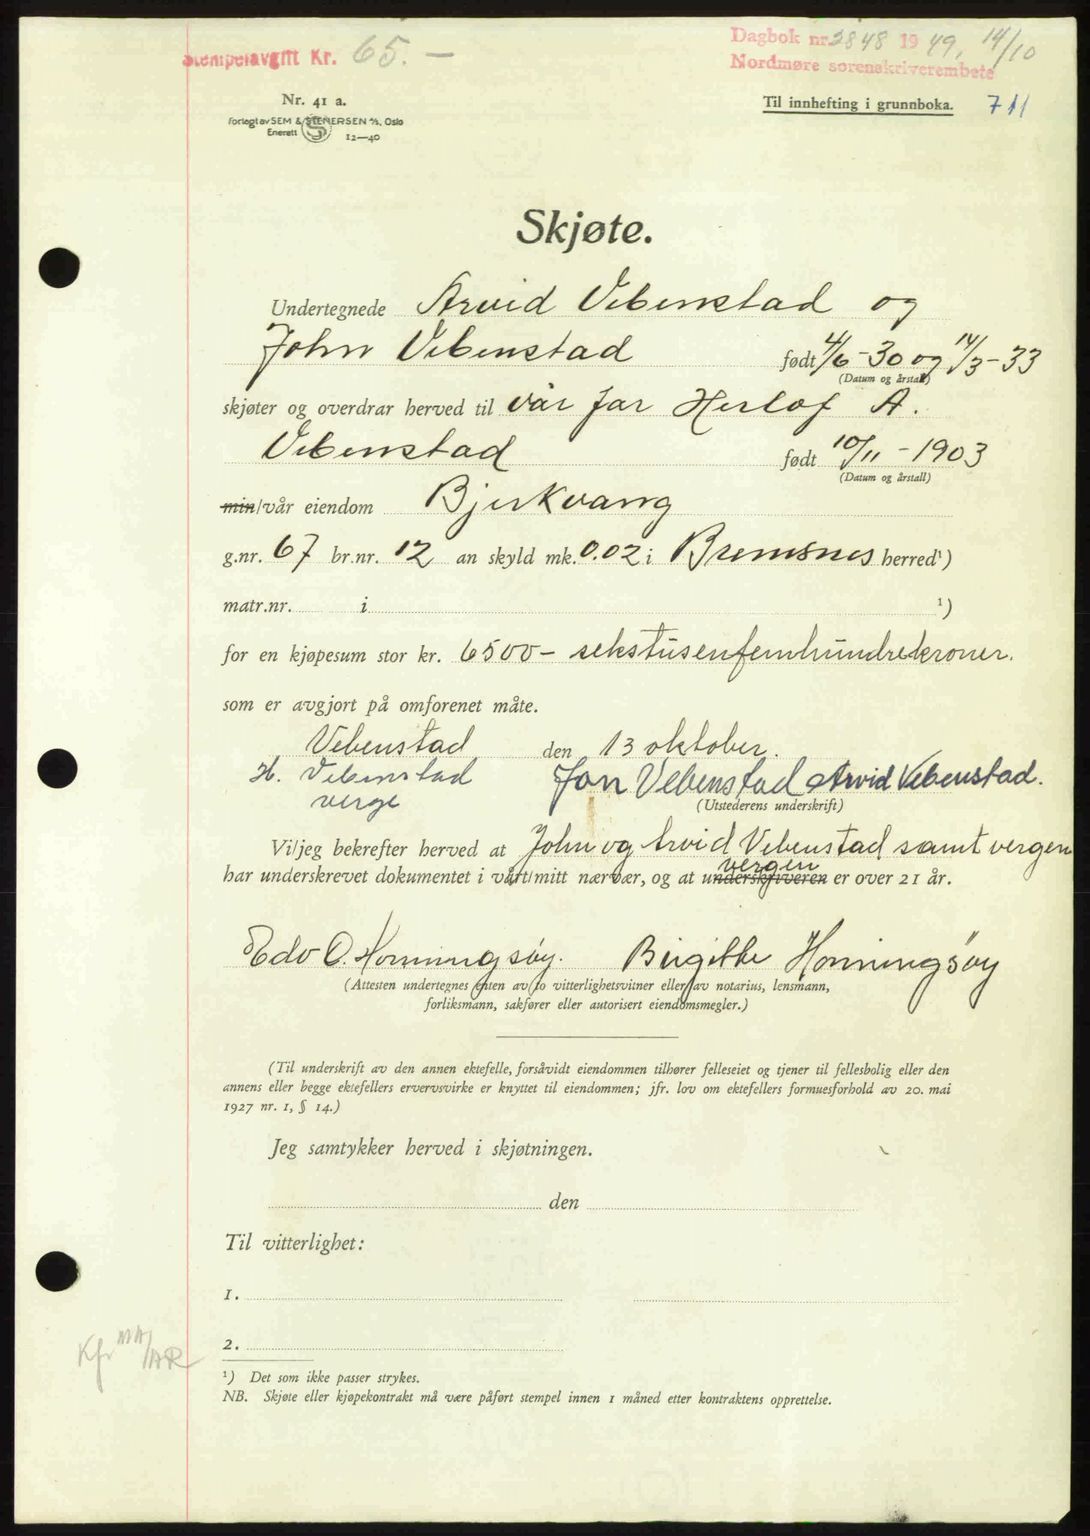 Stempelavgift Kr. 65.—
Dagbok nr. 2848 1949, 14/10
Nordmøre sorenskriverembete
Nr. 41 a.
Forlagt av SEM & STENERSEN A/S, Oslo
Enerett 12—40
Til innhefting i grunnboka. 711
Skjøte.
Undertegnede Arvid Vebenstad og
John Vebenstad født 4/6-30 og 14/3-33
(Datum og årstall)
skjøter og overdrar herved til vår far Herlof A.
Vebenstad født 10/11-1903
(Datum og årstall)
min/vår eiendom Bjerkvang
g.nr. 67 br.nr. 12 an skyld mk. 0.02 i Bremsnes herred¹)
matr.nr. i ¹)
for en kjøpesum stor kr. 6500- sekstusenfemhundrekroner.
som er avgjort på omforenet måte.
Vebenstad den 13 oktober.
H. Vebenstad Jon Vebenstad Arvid Vebenstad.
verge (Utstederens underskrift)
Vi/jeg bekrefter herved at John og Arvid Vebenstad samt vergen
vergen
har underskrevet dokumentet i vårt/mitt nærvær, og at underskriveren er over 21 år.
Edv O. Honningsöy. Birgitte Honningsöy
(Attesten undertegnes enten av to vitterlighetsvitner eller av notarius, lensmann,
forliksmann, sakfører eller autorisert eiendomsmegler.)
(Til underskrift av den annen ektefelle, forsåvidt eiendommen tilhører felleseiet og tjener til fellesbolig eller den
annens eller begge ektefellers ervervsvirke er knyttet til eiendommen; jfr. lov om ektefellers formuesforhold av 20. mai
1927 nr. 1, § 14.)
Jeg samtykker herved i skjøtningen.
den
Til vitterlighet:
1.
2.
Kfr MA/AR
¹) Det som ikke passer strykes.
NB. Skjøte eller kjøpekontrakt må være påført stempel innen 1 måned etter kontraktens opprettelse.